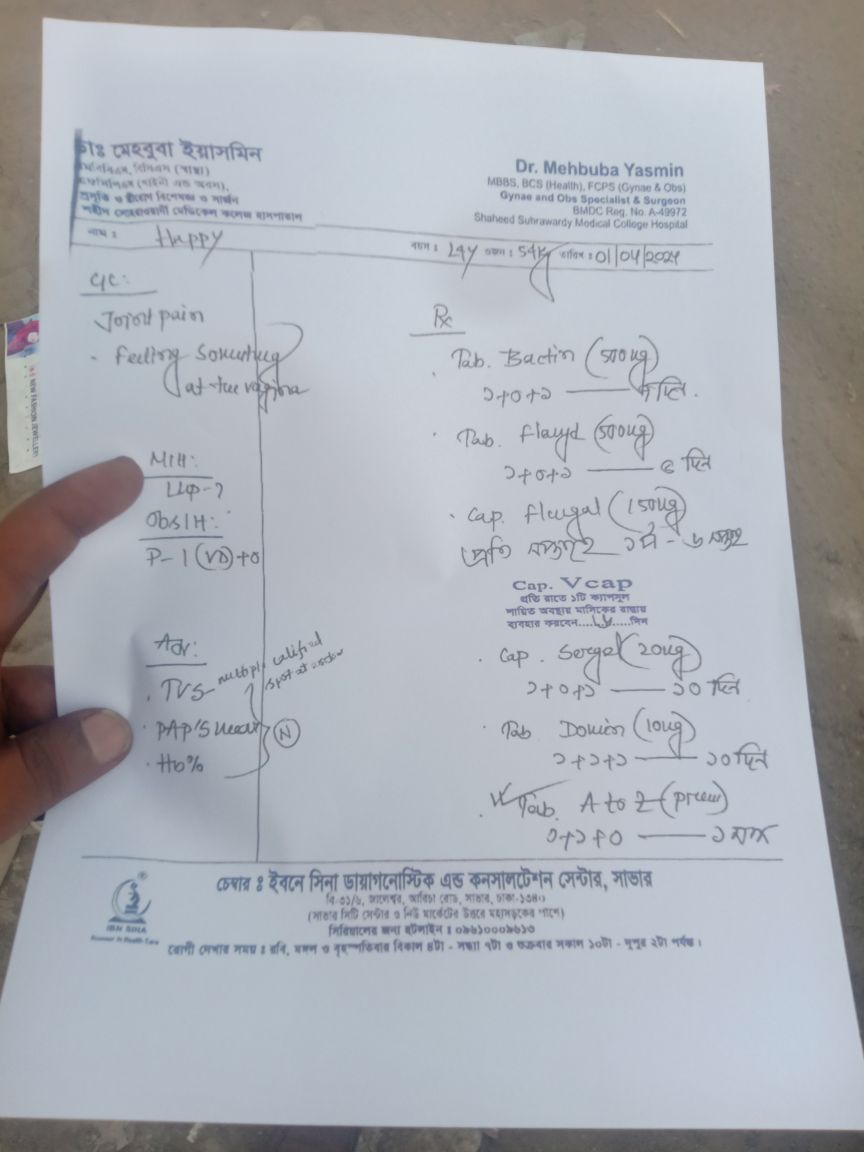 ডাঃ মেহবুবা ইয়াসমিন
এমবিবিএস, বিসিএস (স্বাস্থ্য)
এফসিপিএস (গাইনী এন্ড অবস),
প্রসূতি ও স্ত্রীরোগ বিশেষজ্ঞ ও সার্জন
শহীদ সোহরাওয়ার্দী মেডিকেল কলেজ হাসপাতাল
Dr. Mehbuba Yasmin
MBBS, BCS (Health), FCPS (Gynae & Obs)
Gynae and Obs Specialist & Surgeon
BMDC Reg. No. A-49972
Shaheed Suhrawardy Medical College Hospital
নাম : Happy
বয়স : 24y ওজন : 54kg তারিখ : 01/04/2024
C/C:
Joint pain
· Feeling something
at the vagina
M/H:
Obs/H:
P-1 (VD)+0
Adv:
· TVS- multiple
· PAP'Smear
· Hb%
N
Rx
· Tab. Bactin (500mg)
১+০+১ — দিন.
· Tab. Flagyl (500mg)
১+০+১ — দিন
· Cap. Flugal (150mg)
প্রতি সপ্তাহে ১টা - ৬ সপ্তাহ
Cap. Vcap
প্রতি রাতে ১টি ক্যাপসুল
শায়িত অবস্থায় মাসিকের রাস্তায়
ব্যবহার করবেন.....দিন
· Cap. Sergel (20mg)
১+০+১ — ১০ দিন
· Tab. (10mg)
১+১+১ — ১০ দিন
· Tab. A to Z (prem)
০+১+০ — ১ মাস
চেম্বার : ইবনে সিনা ডায়াগনোস্টিক এন্ড কনসালটেশন সেন্টার, সাভার
আরিচা রোড, সাভার, ঢাকা-১৩৪০
(সাভার সিটি সেন্টার ও নিউ মার্কেটের উত্তরে মহাসড়কের পাশে)
সিরিয়ালের জন্য হটলাইন : ০৯৬১০০০৯৬১৩
রোগী দেখার সময় : রবি, মঙ্গল ও বৃহস্পতিবার বিকাল ৪টা - সন্ধ্যা ৭টা ও শুক্রবার সকাল ১০টা - দুপুর ২টা পর্যন্ত।
IBN SINA
NEW FASHION JEWELLERY